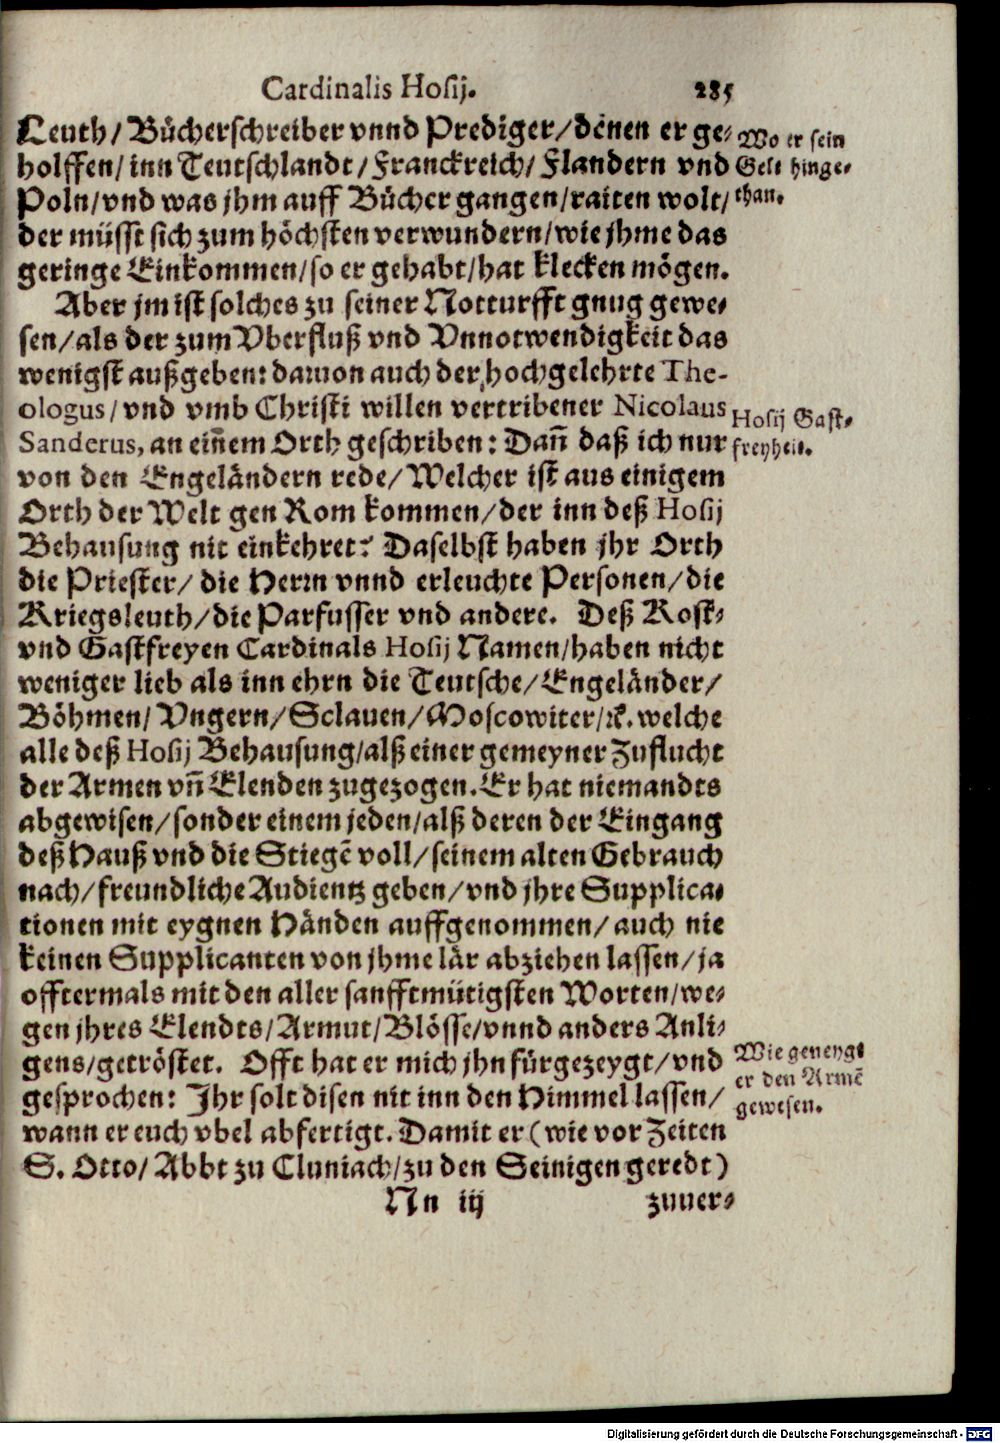 Cardinalis Hosij. 285
Leuth/ Bücherschreiber vnnd Prediger/denen er ge-
holffen/ inn Teutschlandt/Franckreich/ Flandern vnd
Poln/vnd was jhm auff Bücher gangen/raiten wolt/
der müsst sich zum höchsten verwundern/wie jhme das
geringe Einkommen/so er gehabt/hat klecken mögen.
Wo er sein
Gelt hinge-
than.
Aber jm ist solches zu seiner Notturfft gnug gewe-
sen/als der zum Vberfluß vnd Vnnotwendigkeit das
wenigst außgeben: dauon auch der hochgelehrte The-
ologus/vnd vmb Christi willen vertribener Nicolaus
Sanderus, an eiñem Orth geschriben: Dañ daß ich nur
von den Engeländern rede/Welcher ist aus einigem
Orth der Welt gen Rom kommen/der inn deß Hosij
Behausung nit einkehret? Daselbst haben jhr Orth
die Priester/ die Herrn vnnd erleuchte Personen/die
Kriegsleuth/die Parfusser vnd andere. Deß Kost-
vnd Gastfreyen Cardinals Hosij Namen/haben nicht
weniger lieb als inn ehrn die Teutsche/Engeländer/
Böhmen/Vngern/Sclauen/Moscowiter/ꝛc. welche
alle deß Hosij Behausung/alß einer gemeyner Zuflucht
der Armen vñ Elenden zugezogen. Er hat niemandts
abgewisen/sonder einem jeden/alß deren der Eingang
deß Hauß vnd die Stiegẽ voll/seinem alten Gebrauch
nach/freundliche Audientz geben/vnd jhre Supplica-
tionen mit eygnen Händen auffgenommen/auch nie
keinen Supplicanten von jhme lär abziehen lassen/ja
offtermals mit den aller sanfftmütigsten Worten/we-
gen jhres Elendts/Armut/Blösse/vnnd anders Anli-
gens/getröstet. Offt hat er mich jhn fürgezeygt/vnd
gesprochen: Jhr solt disen nit inn den Himmel lassen/
wann er euch vbel abfertigt. Damit er (wie vor Zeiten
S. Otto/Abbt zu Cluniach/zu den Seinigen geredt)
Hosij Gast-
freyheit.
Wie geneygt
er den Armẽ
gewesen.
Nn iij zuuer-
Digitalisierung gefördert durch die Deutsche Forschungsgemeinschaft - DFG